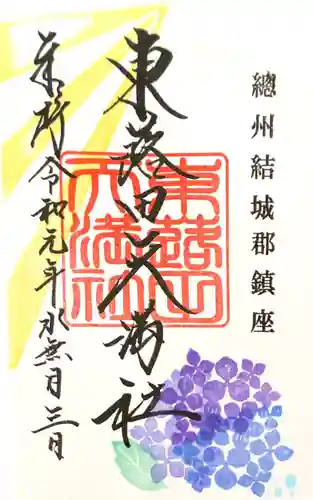 總州結城郡鎮座
東蕗田天満社
東蕗田天満社
奉拝令和元年水無月三日